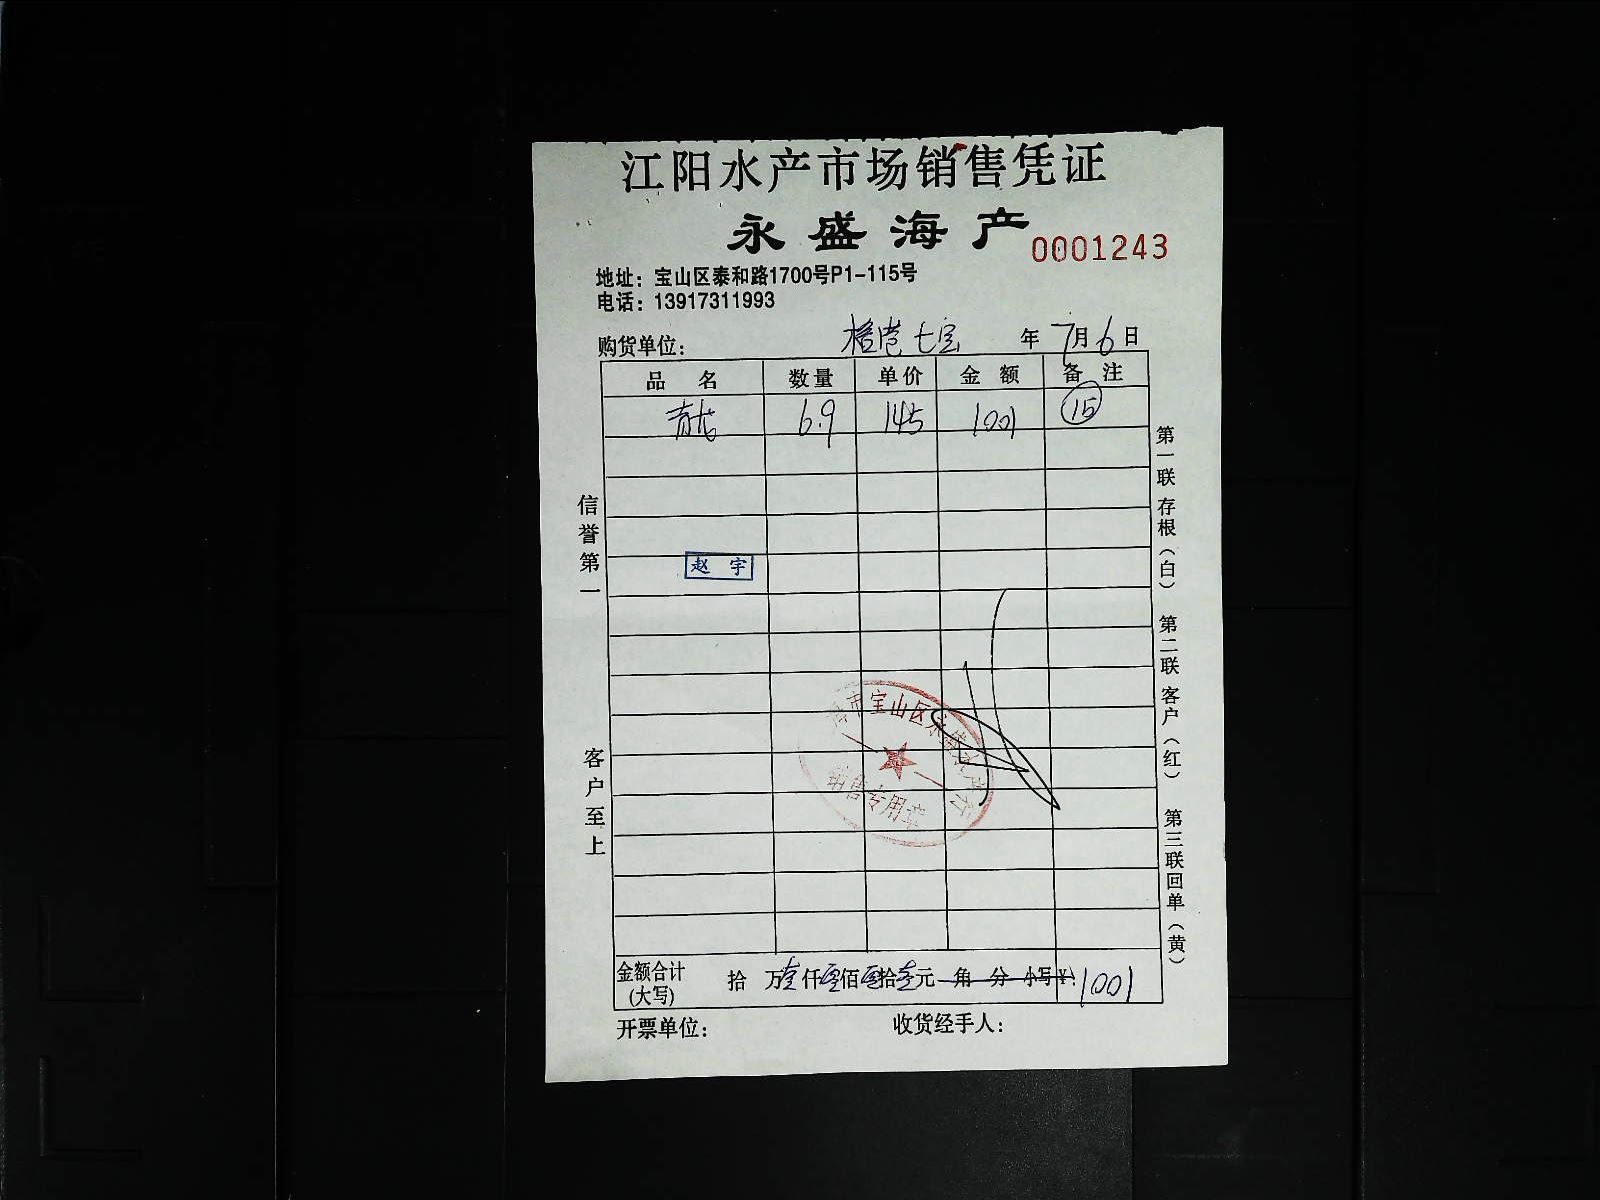 江阳水产市场销售凭证
永盛海产
0001243
地址：宝山区泰和路1700号P1-115号
电话：13917311993
购货单位： 七宝 年7月6日
品名 数量 单价 金额 备注
青龙 6.9 145 1001 15
赵宇
信誉第一
客户至上
第一联存根（白）
第二联客户（红）
第三联回单（黄）
市宝山区永盛水产行
销售专用章
金额合计 拾 万壹仟零佰零拾壹元 角 分 小写¥：1001
(大写)
开票单位： 收货经手人：